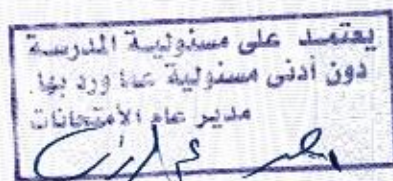 يعتمد على مسئولية المدرسة
دون أدنى مسئولية عما ورد بها.
مدير عام الأمتحانات